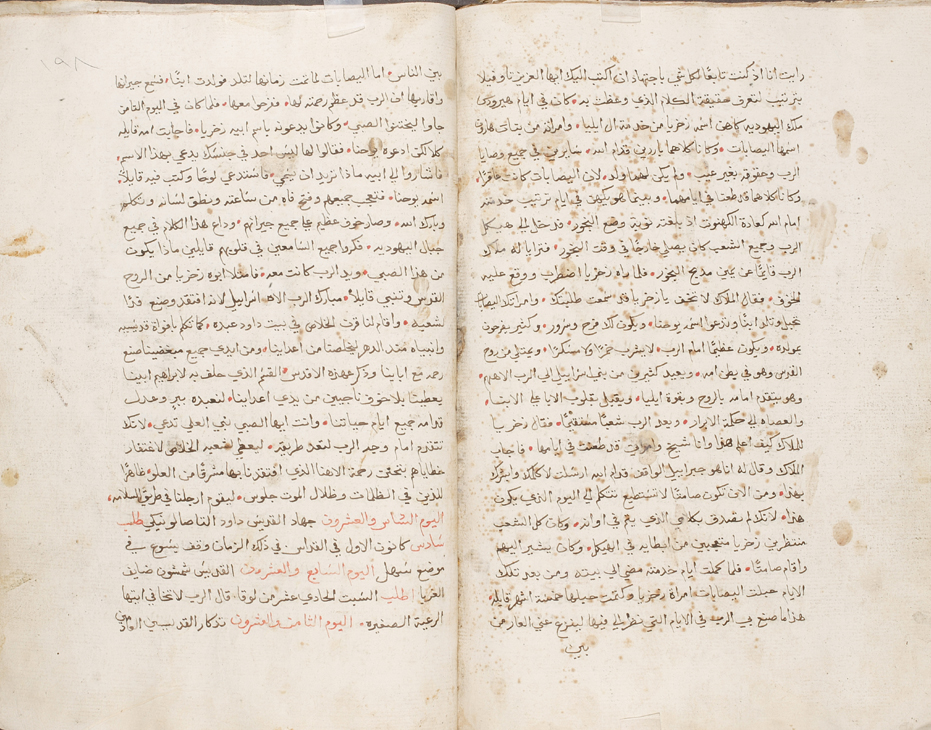 رايت انا اذ كنت تابعًا لكل شي باجتهاد ان اكتب اليك ايها العزيز تاوفيلا
بترتيب لتعرف حقيقة الكلام الذي وعظت به • كان في ايام هيرودس
ملك اليهوديه كاهن اسمه زخريا من خدمة ال ابيا • وامراته من بنات هارون
اسمها اليصابات • وكانا كلاهما بارين قدام الله • سايرين في جميع وصايا
الرب وحقوقه بغير عيب • ولم يكن لهما ولد • لان اليصابات كانت عاقرًا •
وكانا كلاهما قد طعنا في ايامهما • وبينما هو يكهن في ايام ترتيب خدمته
امام الله كعادة الكهنوت اذ بلغته نوبة وضع البخور • فدخل الي هيكل
الرب وجميع الشعب كان يصلي خارجًا في وقت البخور • فترايا له ملاك
الرب قايمًا عن يمين مدبح البخور • فلما راه زخريا اضطرب ووقع عليه
الخوف • فقال له الملاك لا تخف يا زخريا قد سمعت طلبتك • وامراتك اليصابات
تحبل وتلد ابنًا وتدعوا اسمه يوحنا • ويكون لك فرح وسرور • وكثير يفرحون
بمولده • ويكون عظيمًا امام الرب • لا يشرب خمرًا ولا مسكرًا • ويمتلي من روح
القدس وهو في بطن امه • ويعيد كثيرين من بني اسراييل الي الرب الاههم •
وهو يتقدم امامه بالروح وبقوة ايليا • ويقبل بقلوب الابا علي الابنا •
والعصاه الي حكمة الابرار • ويعد للرب شعبًا مستقيمًا • فقال زخريا
للملاك كيف اعلم هذا وانا شيخ وامراتي قد طعنت في ايامها • فاجاب
الملاك وقال له انا هو جبراييل الواقف قدام الله ارسلت لاكلمك وابشرك
بهذا • ومن الان تكون صامتًا لا تستطيع تتكلم الي اليوم الذي يكون
هذا • لانك لم تصدق بكلامي الذي يتم في اوانه • وكان كل الشعب
منتظرين زخريا متعجبين من ابطايه في الهيكل • وكان يشير اليهم
واقام صامتًا • فلما كملت ايام خدمته مضي الي بيته ومن بعد تلك
الايام حبلت اليصابات امراة زخريا وكتمت حبلها خمسة اشهر قايله
هذا ما صنع بي الرب في الايام التي نظر الي فيها لينزع عني العار من
بين
١٩٨
بين الناس • اما اليصابات لما تمت زمانها لتلد فولدت ابنًا • فسمع جيرانها
واقاربها ان الرب قد عظم رحمته لها • ففرحوا معها • فلما كان في اليوم الثامن
جاوا ليختنوا الصبي • وكانوا يدعونه باسم ابيه زخريا • فاجابت امه قايله
كلا لكن ادعوه يوحنا • فقالوا لها ليس احد في جنسك يدعي بهذا الاسم •
فاشاروا الي ابيه ماذا تريد ان يسمي • فاستدعي لوحًا وكتب فيه قايلًا •
اسمه يوحنا • فتعجب جميعهم وفتح فاه من ساعته ونطق لسانه وتكلم
وبارك الله • وصار خوف عظيم علي جميع جيرانهم • وذاع هذا الكلام في جميع
جبال اليهوديه • فكروا جميع السامعين في قلوبهم قايلين ماذا يكون
من هذا الصبي • ويد الرب كانت معه • فامتلا ابوه زخريا من الروح
القدوس وتنبي قايلًا • مبارك الرب الاه اسراييل لانه افتقد وصنع فدًا
لشعبه • واقام لنا قرن الخلاص في بيت داود عبده • كما تكلم بافواه قديسيه
وانبياه منذ الدهر بخلصنا من اعداينا • ومن ايدي جميع مبغضينا صنع
رحمه مع اباينا وذكر عهده الاقدس • القسم الذي حلف به لابراهيم ابينا
يعطينا بلا خوف ناجيين من يدي اعداينا • لنعبده ببر وعدل
قدامه جميع ايام حياتنا • وانت ايها الصبي نبي العلي تدعي • لانك
تتقدم امام وجه الرب لتعد طريقه • ليعطي لشعبه الخلاص لاغتفار
خطاياهم بتحنن رحمة الاهنا الذي افتقدنا بها مشرقًا من العلو • ظاهرًا
للذين في الظلمات وظلال الموت جلوس • ليقوم ارجلنا في طريق السلامه •
اليوم السادس والعشرون جهاد القديس داود التاصالونيكي طلب
سادس كانون الاول في القداس في ذلك الزمان وقف يسوع في
موضع سهل اليوم السابع والعشرون القديس شمشون ضايف
الغربا اطلب السبت الحادي عشر من لوقا • قال الرب لا تخافي ايتها
الرعية الصغيره • اليوم الثامن والعشرون تذكار القديسين العادمي